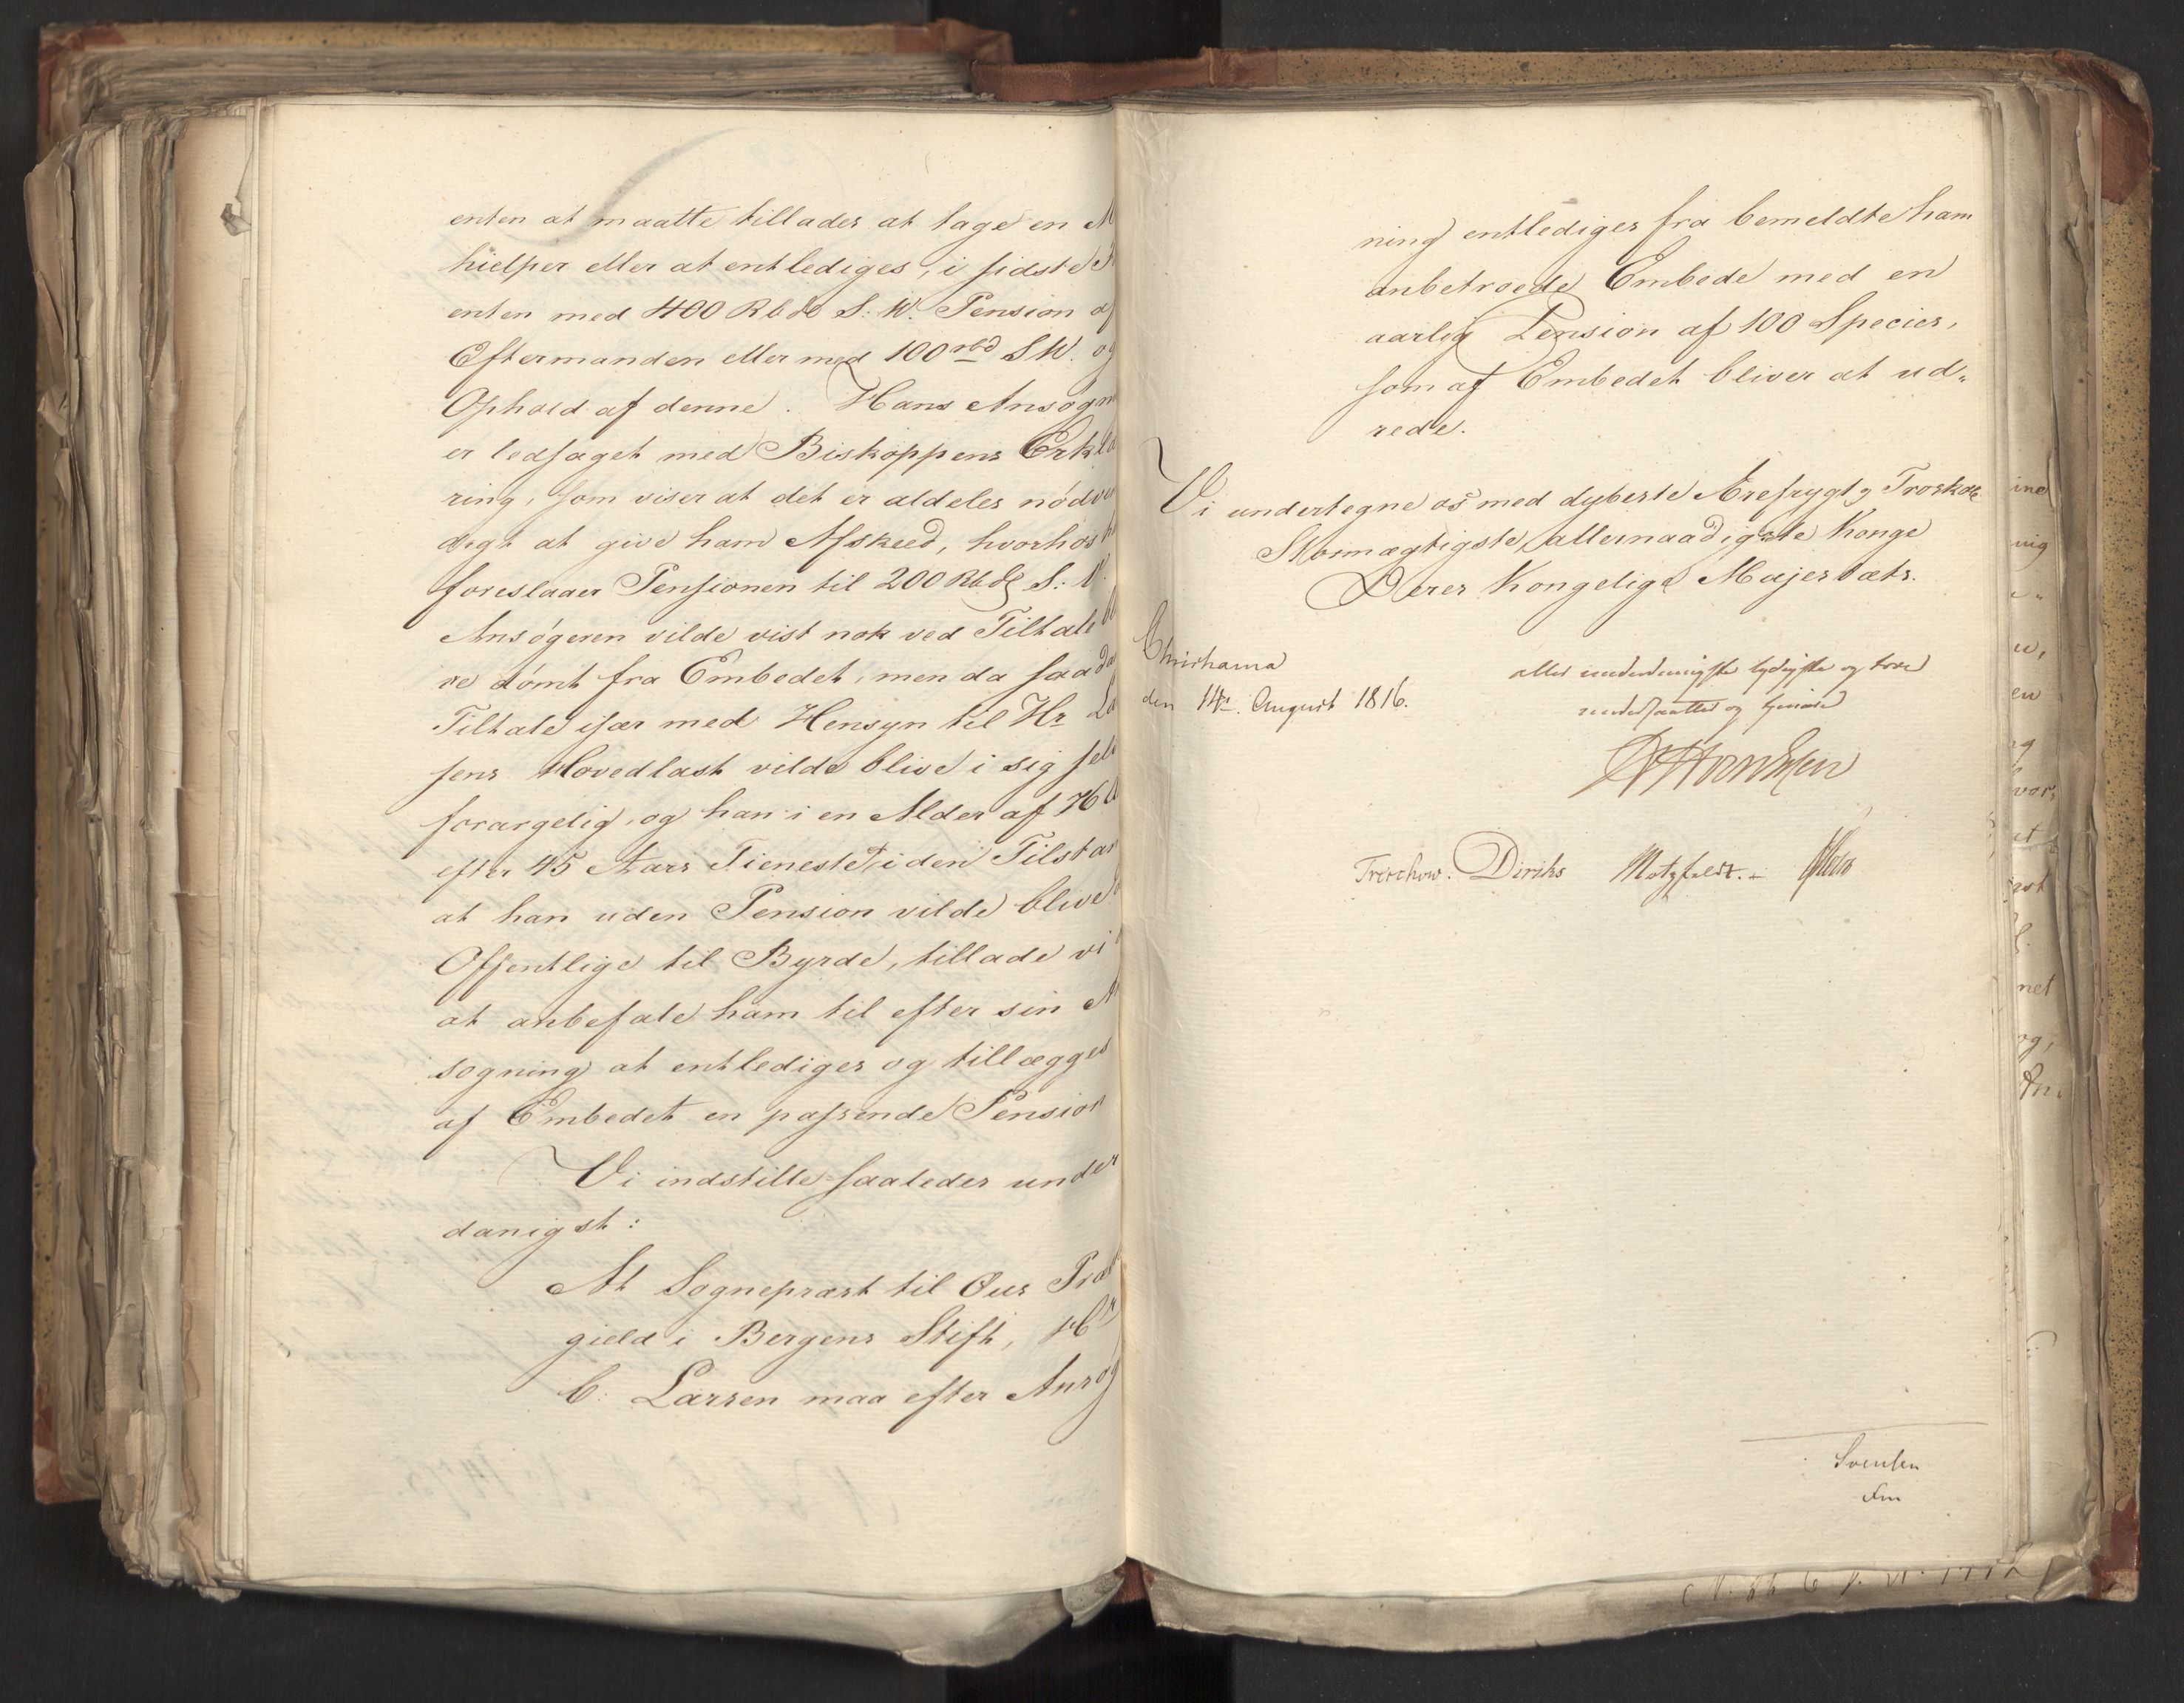 enten at maatte tillades at tage en M
hielper eller at entlediges, i sidste
enten med 400 Rbdl S. W. Pension af
Eftermanden eller med 100 rbd SW. og
Ophold af denne. Hans Ansøgn
er ledsaget med Biskoppens Erklæ
ring, som viser at det er aldeles nødven
digt at give ham Afskeed, hvorhos
foreslaaer Pensionen til 200 Rbdl S. V.
Ansøgeren vilde vist nok ved Tiltale bli
ve dømt fra Embedet, men da saada
Tiltale især med Hensyn til Hr La
sens Hovedlast vilde blive i sig selv
forargelig, og han i en Alder af 76 A
efter 45 Aars Tieneste i den Tilstan
at han uden Pension vilde blive
Offentlige til Byrde, tillade vi
at anbefale ham til efter sin A
søgning at entlediges og tillægges
af Embedet en passende Pension
Vi indstille saaledes under
danigst:
At Sognepræst til Ous Præs
gield i Bergens Stift, Hr
C. Larsen maa efter Ansøg
ning entlediges fra bemeldte ham
anbetroede Embede med en
aarlig Pension af 100 Species,
som af Embedet bliver at ud„
rede.
Vi undertegne os med dybeste Ærefrygt og Troskab
Stormægtigste, allernaadigste Konge
Deres Kongelige Majestæts.
Christiania
den 14de August 1816.
allerunderdanigste lydigste og troe
undersaatter og tjenere
Treschow. Diriks Motzfeldt.
Svensen
Fm